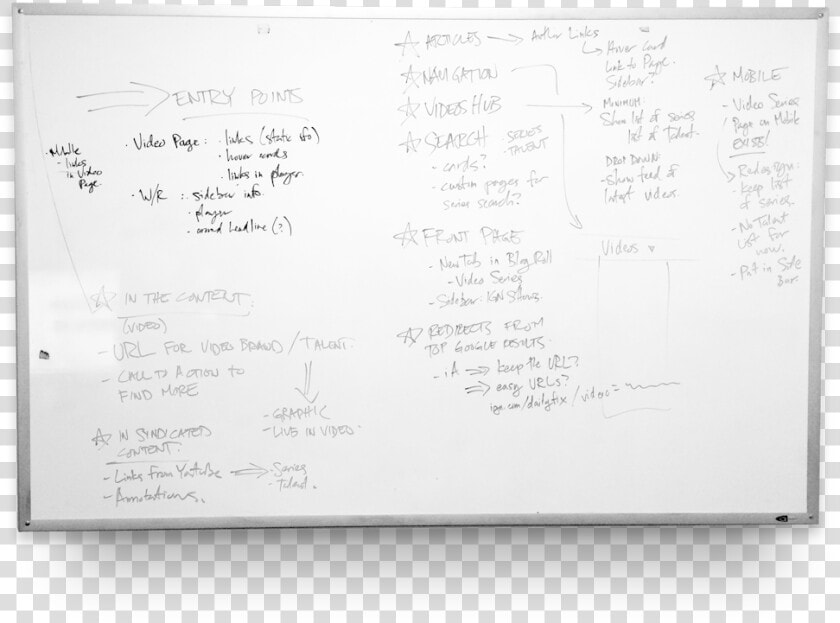 ENTRY POINTS
Mobile
- links
in Video
Page.
• Video Page: • links (static
• hover cards
• links in player.
• W/R : • sidebar info.
• player
• around headline (?)
☆ IN THE CONTENT:
(VIDEO)
- URL FOR VIDEO BRAND / TALENT.
- CALL TO ACTION TO
FIND MORE
- GRAPHIC
- LIVE IN VIDEO.
☆ IN SYNDICATED
CONTENT:
- Links from YouTube → • Series
• Talent.
- Annotations.
☆ ARTICLES → Author Links
↳ Hover card
Link to Page.
Sidebar?
☆ NAVIGATION
☆ VIDEOS HUB →
MINIMUM:
Show list of series
list of Talent.
DROP DOWN:
- Show feed of
latest videos.
☆ SEARCH SERIES
TALENT
- cards?
- custom pages for
series search?
☆ FRONT PAGE
- New Tab in Blog Roll
- Video Series
- Sidebar: IGN Shows.
Videos
☆ REDIRECTS FROM
TOP GOOGLE RESULTS.
- iA ⇒ keep the URL?
⇒ easy URLs?
ign.com/dailyfix / video =
☆ MOBILE
- Video Series
Page on Mobile
EXISTS!
Redesign:
- keep list
of series.
- No Talent
list for
now.
- Put in Side
bar.